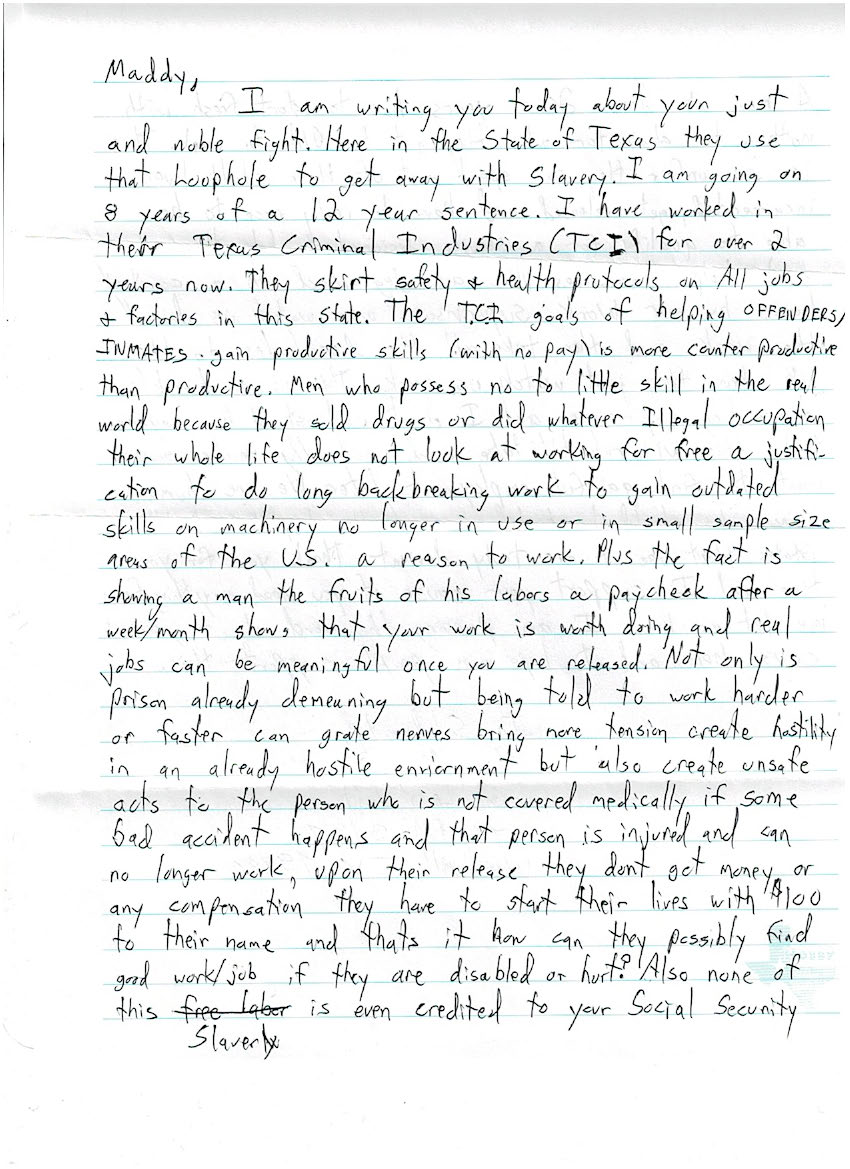 Maddy,
I am writing you today about your just
and noble fight. Here in the State of Texas they use
that Loophole to get away with Slavery. I am going on
8 years of a 12 year sentence. I have worked in
their Texas Criminal Industries (TCI) for over 2
years now. They skirt safety & health protocols on All jobs
& factories in this state. The T.C.I. goals of helping OFFENDERS/
INMATES. gain productive skills (with no pay) is more counter productive
than productive. Men who possess no to little skill in the real
world because they sold drugs or did whatever Illegal occupation
their whole life does not look at working for free a justifi-
cation to do long backbreaking work to gain outdated
skills on machinery no longer in use or in small sample size
areas of the U.S. a reason to work. Plus the fact is
showing a man the fruits of his labors a paycheck after a
week/month shows that your work is worth doing and real
jobs can be meaningful once you are released. Not only is
prison already demeaning but being told to work harder
or faster can grate nerves bring more tension create hostility
in an already hostile enviornment but also create unsafe
acts to the person who is not covered medically if some
bad accident happens and that person is injured and can
no longer work, upon their release they dont get money or
any compensation they have to start their lives with $100
to their name and thats it how can they possibly find
good work/job if they are disabled or hurt? Also none of
this free labor is even credited to your Social Security
Slavery